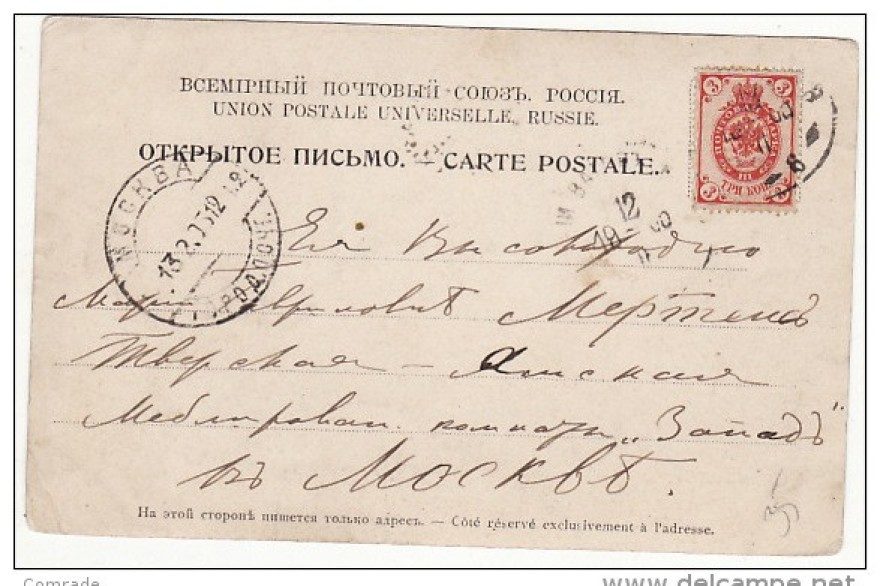 ВСЕМІРНЫЙ ПОЧТОВЫЙ СОЮЗЪ. РОССІЯ.
UNION POSTALE UNIVERSELLE, RUSSIE.
ОТКРЫТОЕ ПИСЬМО. — CARTE POSTALE.
3 3
ПОЧТОВАЯ МАРКА
3 ТРИ КОП. 3
МОСКВА
13.2.05
ГОРОД. ПОЧ.
12
19
8
Ея Высокородію
Маріи Гавриловнѣ Мертенсъ
Тверская - Ямская
Меблирован. комнаты „Западъ"
въ Москвѣ.
На этой сторонѣ пишется только адресъ. — Côté réservé exclusivement à l'adresse.
Comrade
www.delcampe.net